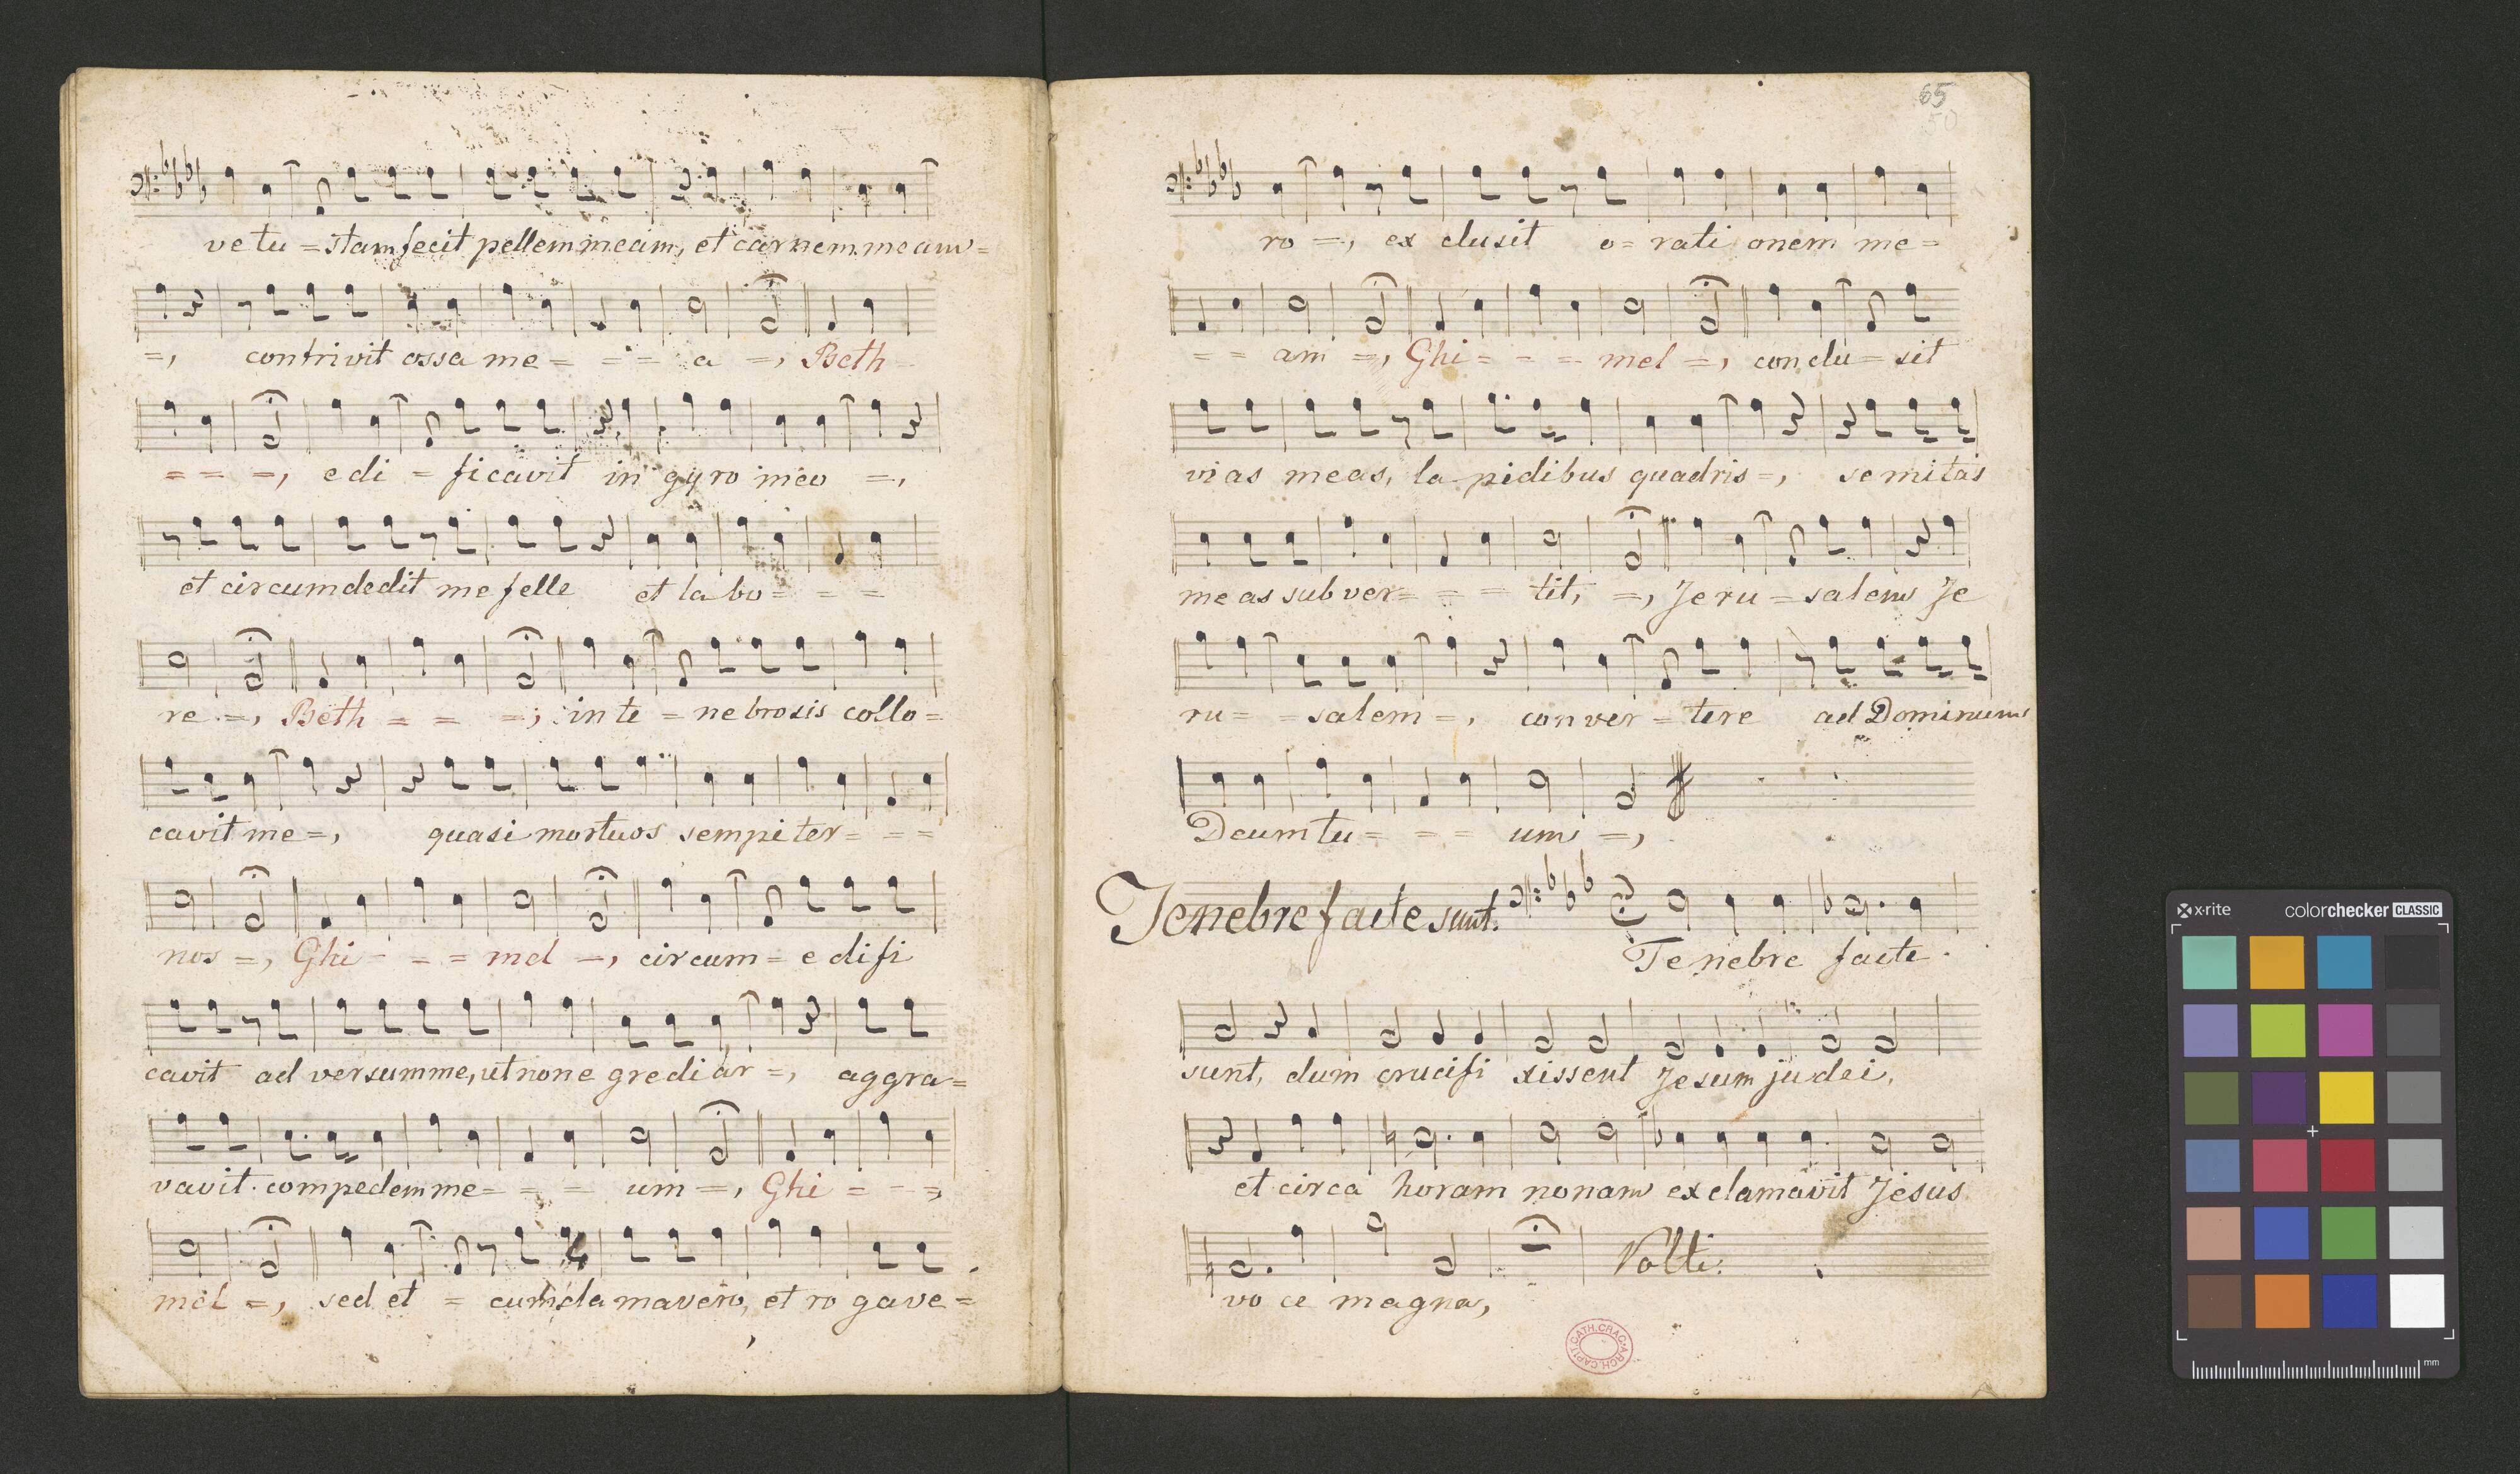 ve tu = stam fecit pellem meam, et carnem meam =
=, contrivit ossa me = = = a =, Beth
= = =, e di = ficavit in gyro meo =,
et circumdedit me felle et la bo = = =
re =, Beth = = =, in te = nebrosis collo =
cavit me =, quasi mortuos sempi ter = = =
nos =, Ghi = = = mel =, circum = e difi
cavit ad versum me, ut non e gredi ar =, aggra =
vavit compedem me = = = um =, Ghi = = =,
mel =, sed et = cum cla mavero, et ro gave =
65
50
ro =, ex clusit o = rati onem me =
= = am =, Ghi = = = mel =, conclu = sit
vias meas, la pidibus quadris =, semitas
me as sub ver = = = tit, =, Je ru = salem Je
ru = = salem =, con ver = tere ad Dominum
Deum tu = = = um =,
Tenebre facte sunt.
Te nebre facte
sunt, dum crucifi xissent Jesum judei,
et circa horam nonam exclamavit Jesus
Volti.
vo ce magna,
CATH. CRAC. ARCH. CAPIT.
x·rite colorchecker CLASSIC
mm